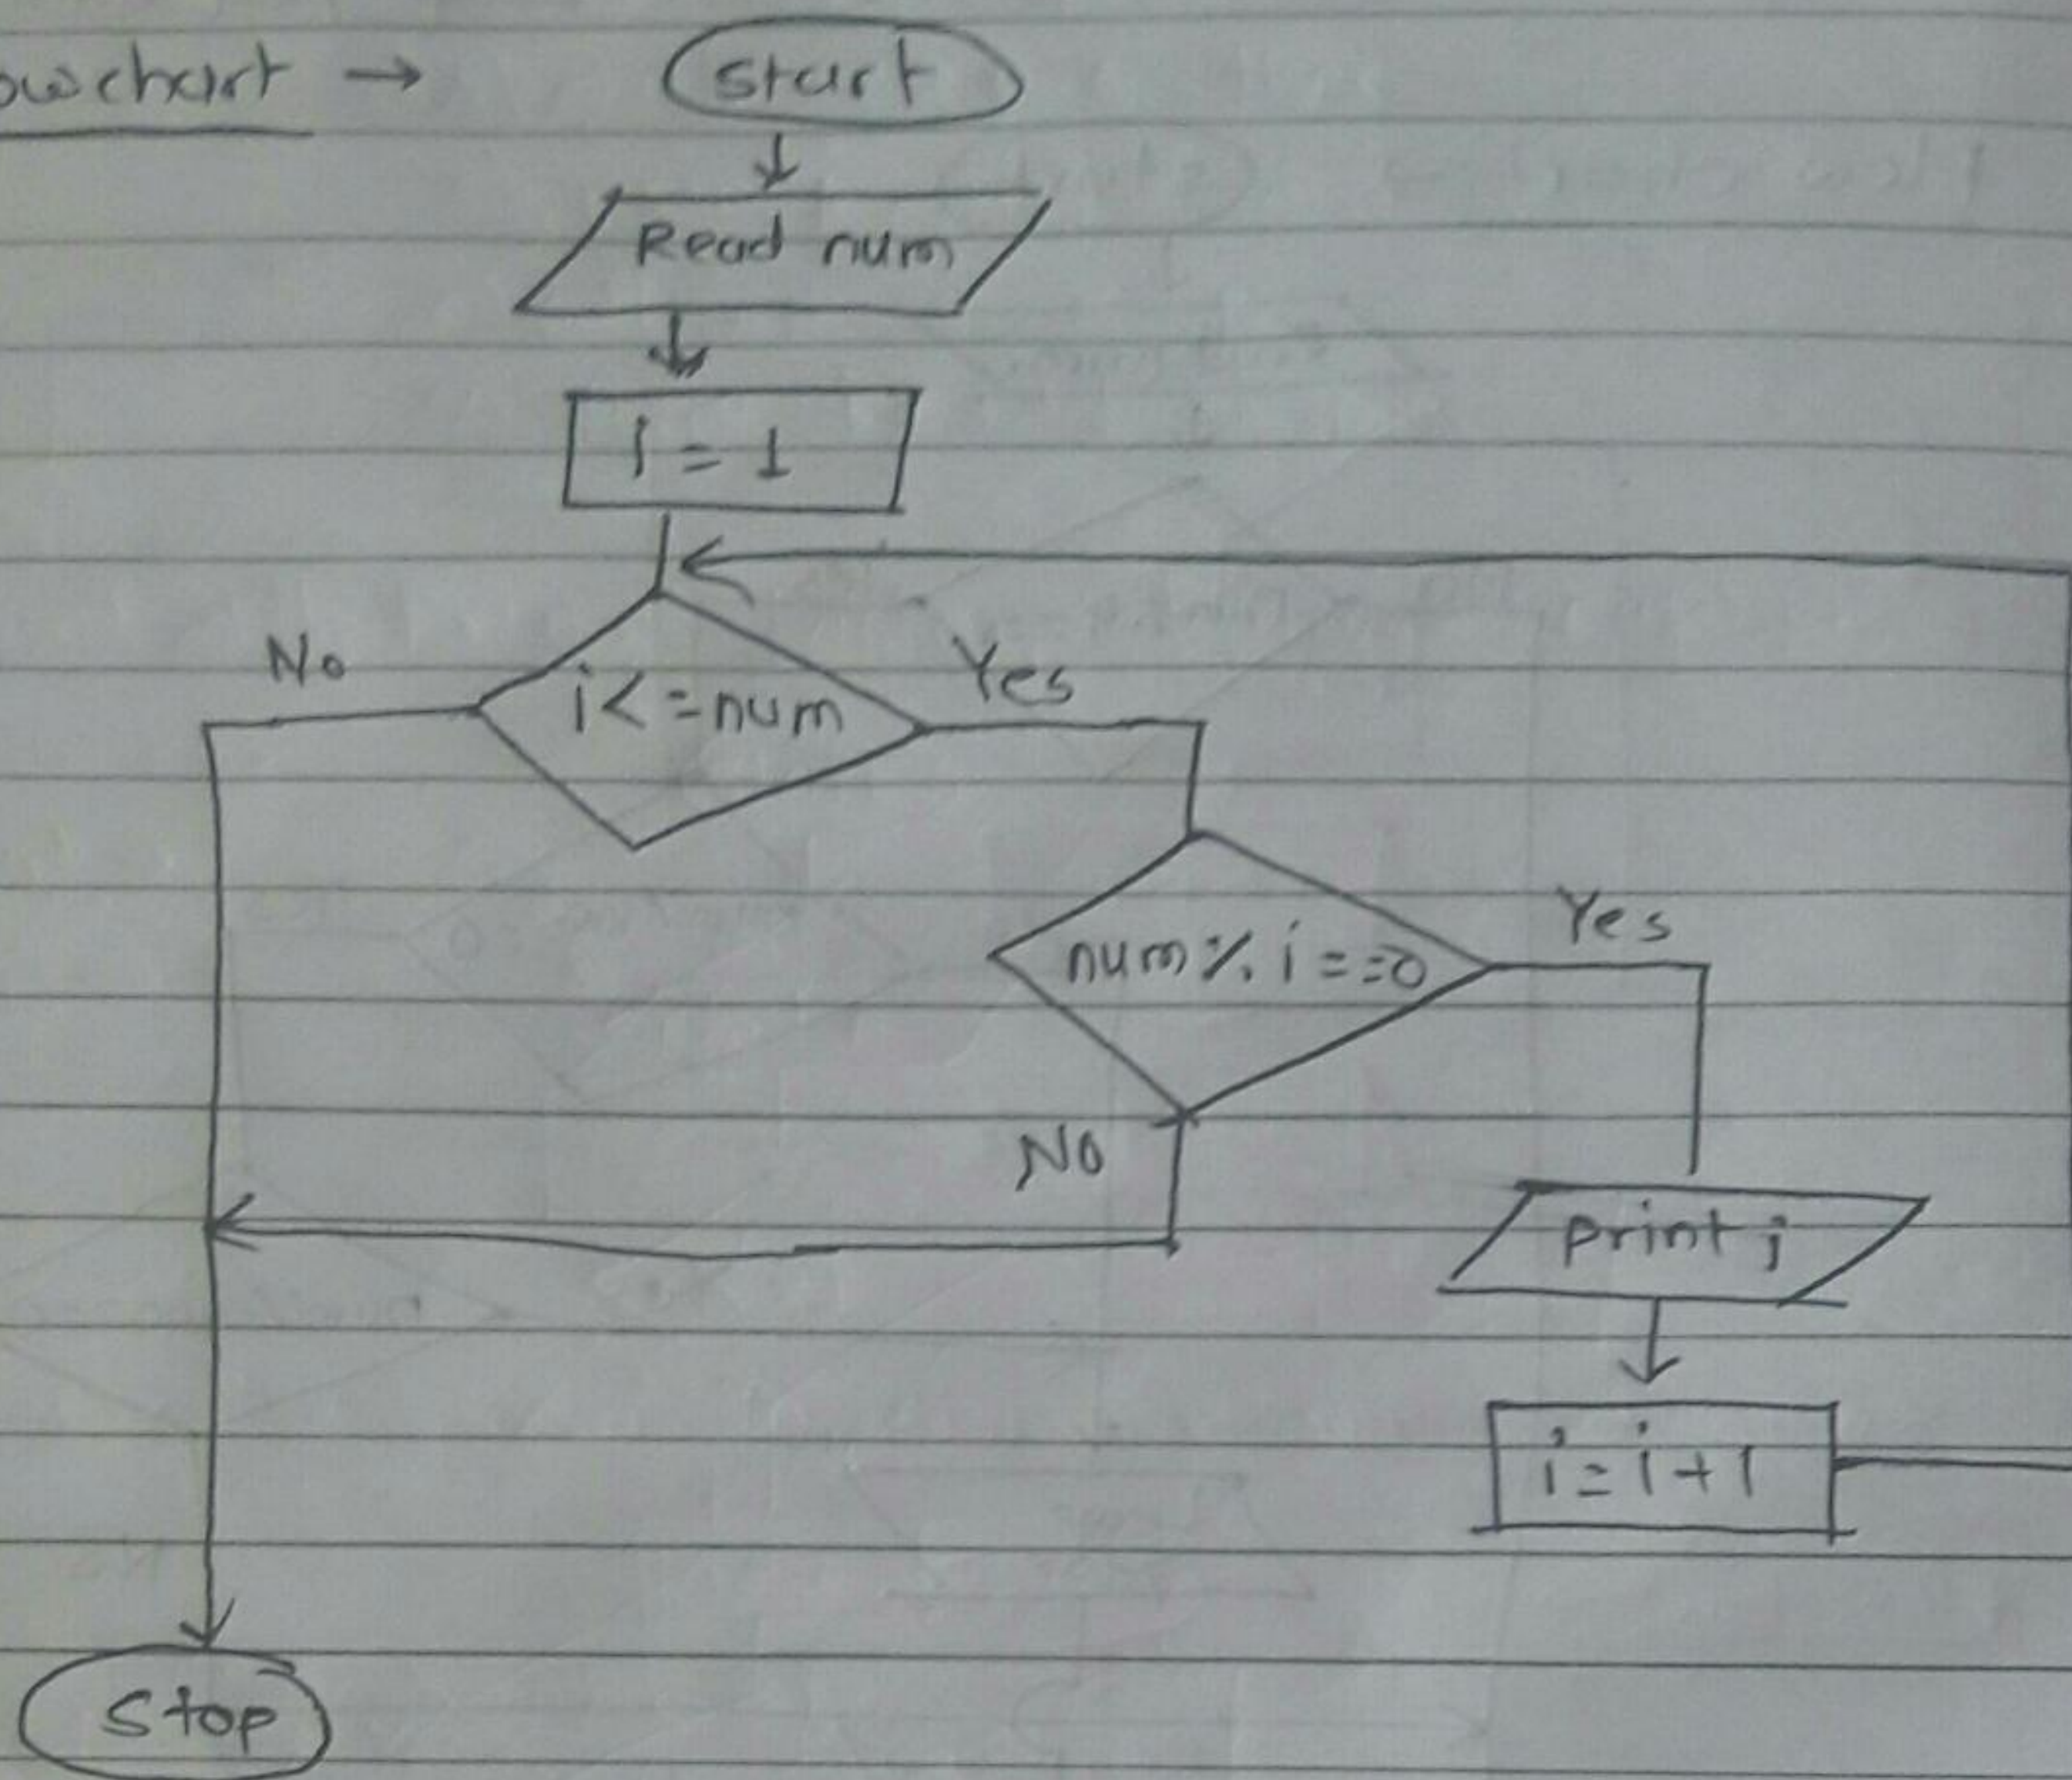 owchart →
start
Read num
i = 1
No
i<=num
Yes
num % i ==0
Yes
No
print i
i=i+1
Stop